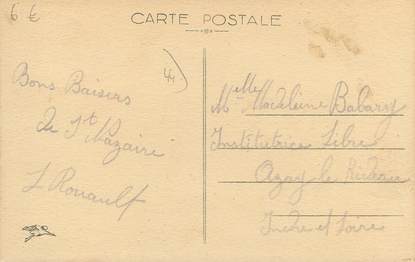 6 €
CARTE POSTALE
44
Bons Baisers
de St Nazaire
L Rouault
Melle Madeleine Babary
Institutrice Libre
Azay le Rideau
Indre et Loire